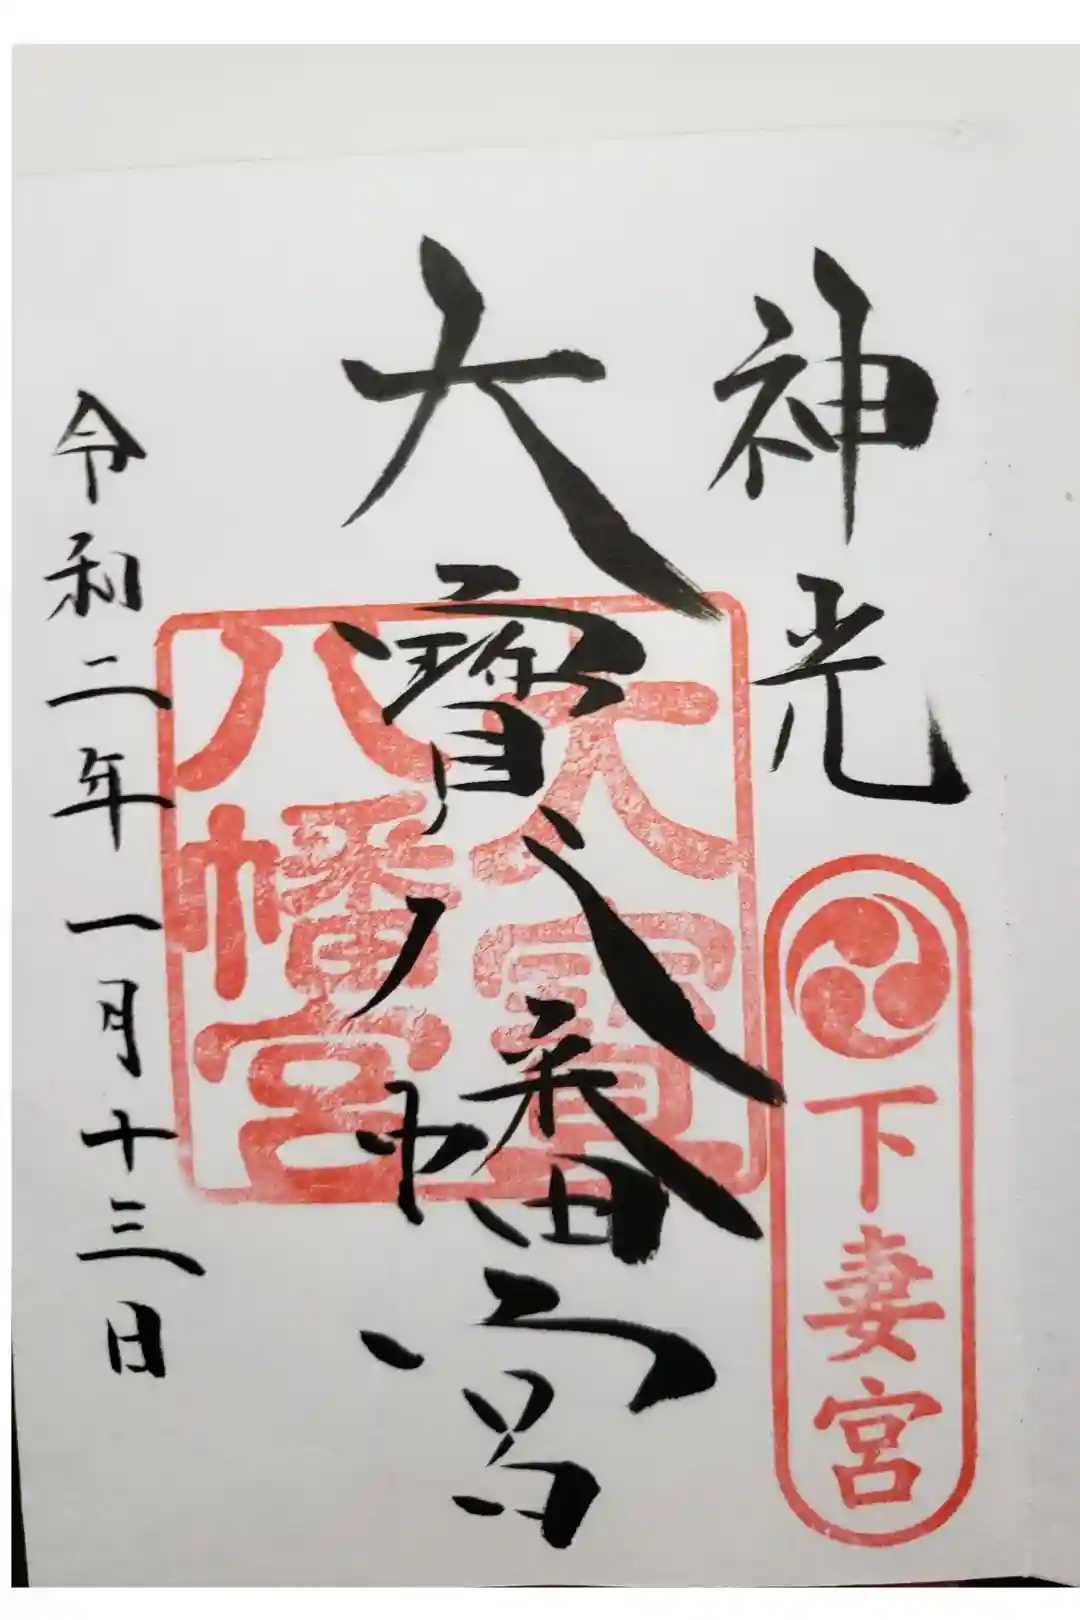 神光
下妻宮
大寶八幡宮
大寶
八幡宮
令和二年一月十三日